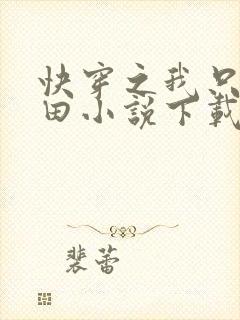 快穿之我只
田小説下載
裴蕾